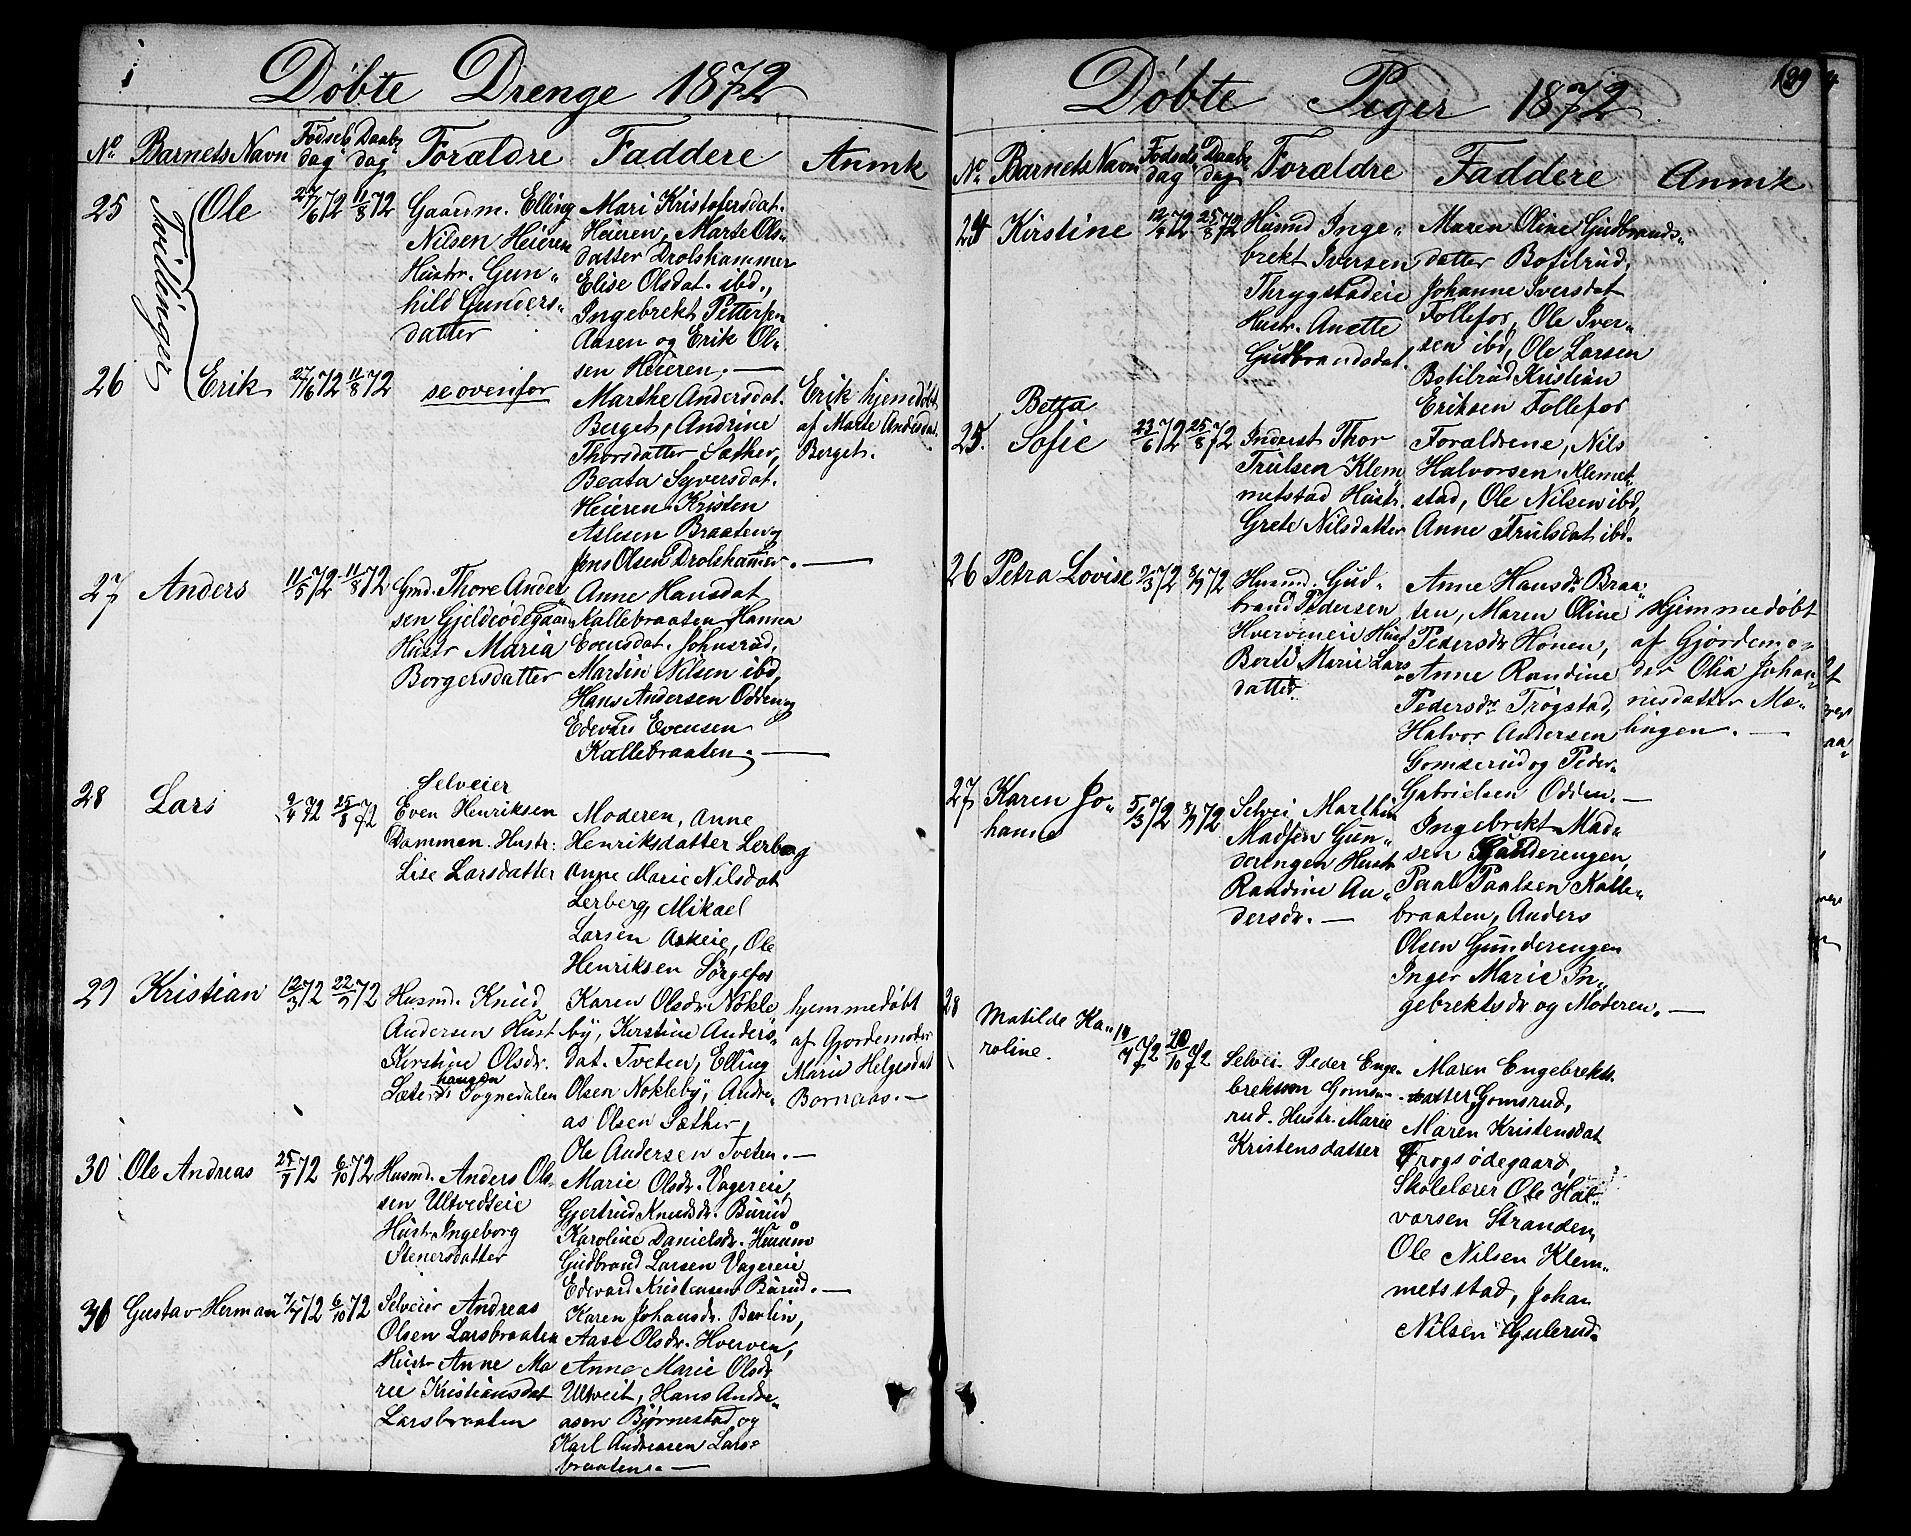 Døbte Drenge 1872
No Barnets Navn Fødsels Daabs Forældre Faddere Anmk
dag dag
25 Tvillinger Ole 27/6 72 11/8 72
Gaardm. Elling
Nilsen Heieren
Hustr. Gun„
hild Gunders„
datter
Mari Kristofersdat.
Heieren, Marte Ols„
datter Drolshammer
Elise Olsdat. ibd.,
Ingebrekt Pettersen
Aasen og Erik Ol„
sen Heieren. —
26 Erik 27/6 72 11/8 72
se ovenfor
Marthe Andersdat.
Berget, Andrine
Thorsdatter Sæther,
Beata Syversdat.
Heieren Kristen
Aslesen Braaten og
Jens Olsen Drolshammer. —
Erik hjemdøbt
af Marte Andersdat.
Berget.
27 Anders 11/5 72 11/8 72
Gmd. Thore Ander„
sen Gjeldeødegaard
Hustr Maria
Borgersdatter
Anne Hansdat
Kallebraaten Hanna
Evensdat. Johnsrud,
Martin Nilsen ibd,
Hans Andersen Odden og
Edevart Evensen
Kallebraaten. —
28 Lars 2/4 72 25/8 72
Selveier
Even Henriksen
Dammen. Hustr:
Lise Larsdatter
Moderen, Anne
Henriksdatter Lerberg
Anne Marie Nilsdat
Lerberg, Mikael
Larsen Askeie, Ole
Henriksen Sørgefos
29 Kristian 12/3 72 22/9 72
Husmd. Knud
Andersen Hust
Kirstine Olsdr.
haugen
Sæter Sognedalen
Karen Olsdr. Nøkle
by, Kirstine Anders„
dat. Tveten, Elling
Olsen Nøkleby, Andre„
as Olsen Sæther,
Ole Andersen Tveten. —
hjemmedøbt
af Gjordemoder
Marie Helgesdat
Bornaas. —
30 Ole Andreas 25/7 72 6/10 72
Husmd. Anders Ols„
sen Ultvedteie
Hustr Ingeborg
Stenersdatter
Marie Olsdr. Vagereie,
Gjertrud Knudsdr. Burud
Karoline Danielsdr. Huum
Gudbrand Larsen Vagereie
Edevard Kristensen Burud. —
31 Gustav Herman 7/7 72 6/10 72
Selveier Andreas
Olsen Larsbraaten
Hustr Anne Ma
rie Kristiansdat
Larsbraaten
Karen Johansdr. Berlin,
Aase Olsdr. Hverven,
Anne Marie Olsdr
Ultveit, Hans Andre„
asen Bjørnestad og
Karl Andreasen Lars„
braaten. —
Døbte Piger 1872
129
No Barnets Navn Fødsels Daabs Forældre Faddere Anmk
dag dag
24 Kirstine 12/4 72 25/8 72
Husmd Inge„
brekt Iversen
Thrygstadeie
Hustr. Anette
Gudbrandsdat.
Maren Oline Gudbrands„
datter Botilrud,
Johanne Iversdat
Follefos, Ole Iver„
sen ibd, Ole Larsen
Botilrud Kristian
Eriksen Follefos
25. Betta
Sofie 23/6 72 25/8 72
Inderst Thor
Trulsen Klem„
metstad Hustr.
Grete Nilsdatter
Forældrene, Nils
Halvorsen Klemet„
stad, Ole Nilsen ibd,
Anne Trulsdat ibd.
26 Petra Lovise 2/3 72 8/9 72
Husmd. Gud„
brand Pedersen
Hverveneie Hust
Berte Marie Lars
datter
Anne Hansdr. Braa„
ten, Maren Oline
Pedersdr Hønen,
Anne Randine
Pedersdr Trøgstad,
Halvor Andersen
Gomserud og Peder
Gabrielsen Odden. —
Hjemmedøbt
af Gjordemo„
der Olia Johan„
nesdatter Mæ„
lingen. —
27 Karen Jo„
hanne 5/3 72 8/9 72
Selvei Marthin
Madsen Gun„
derengen Hust
Randine An„
dersdr. —
Ingebrekt Mad„
sen Gunderengen,
Paal Paalsen Kalle„
braaten, Anders
Olsen Gunderengen
Inger Marie In„
gebrektsdr og Moderen. —
28 Matilde Ka„
roline. 72 20/10 72
Selvei. Peder Enge„
brektson Goms„
rud. Hustr. Marie
Kristensdatter
Maren Engebrekts
datter Gomsrud,
Maren Kristensdat
Frogsødegaard,
Skolelærer Ole Hal„
vorsen Stranden,
Ole Nilsen Klem„
metsstad, Johan
Nilsen Gulerud.